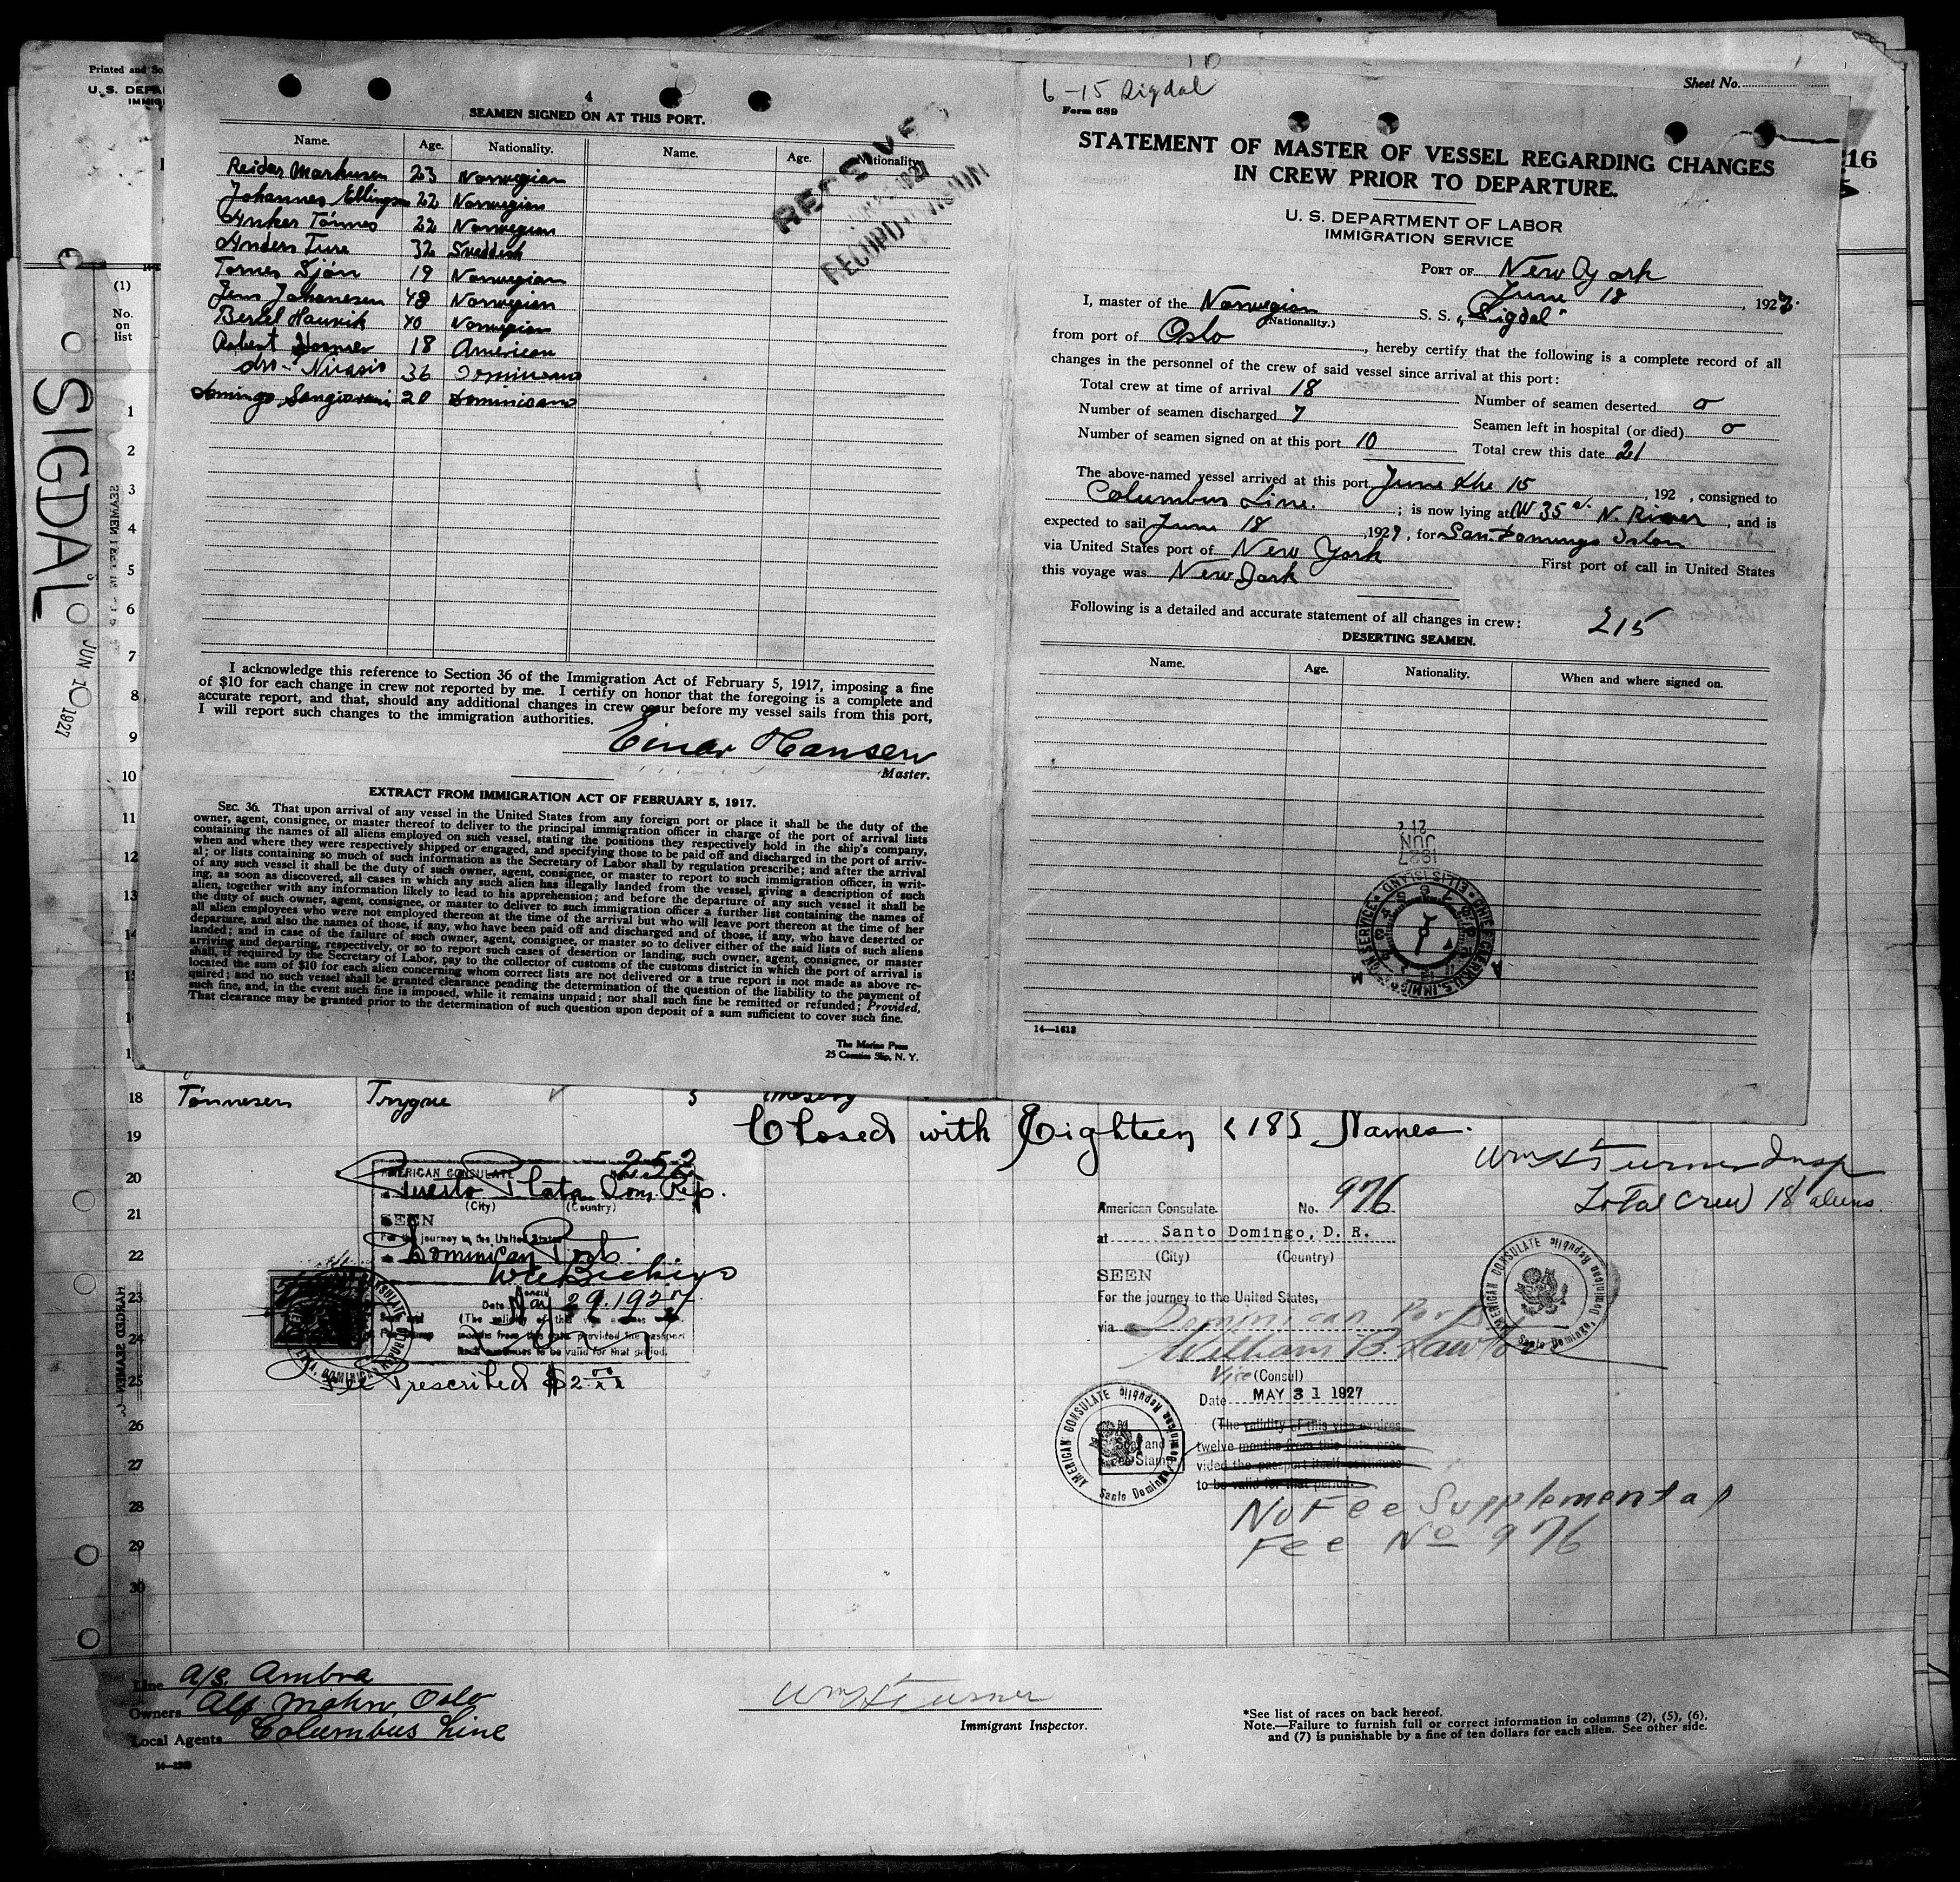 Printed and So
U. S. DEPA
IMMIG
(1)
No.
on
list
SIGDAL
JUN 10 1927
4
SEAMEN SIGNED ON AT THIS PORT.
Name. Age. Nationality. Name. Age. Nationality.
Reidar Markusen 23 Norwegian
Johannes Ellingsen 22 Norwegian
Anker Tönnes 22 Norwegian
Anders Ture 32 Sveddish
Tornes Sjön 19 Norwegian
Jens Johanesen 48 Norwegian
Bertel Hauvik 40 Norwegian
Robert 18 American
36 Dominicano
Domingo Sangiovani 20 Dominicano
RECEIVE
1927
RECORD DIVISION
I acknowledge this reference to Section 36 of the Immigration Act of February 5, 1917, imposing a fine
of $10 for each change in crew not reported by me. I certify on honor that the foregoing is a complete and
accurate report, and that, should any additional changes in crew occur before my vessel sails from this port,
I will report such changes to the immigration authorities.
Einar Hansen
Master.
EXTRACT FROM IMMIGRATION ACT OF FEBRUARY 5, 1917.
SEC. 36. That upon arrival of any vessel in the United States from any foreign port or place it shall be the duty of the
owner, agent, consignee, or master thereof to deliver to the principal immigration officer in charge of the port of arrival lists
containing the names of all aliens employed on such vessel, stating the positions they respectively hold in the ship's company,
when and where they were respectively shipped or engaged, and specifying those to be paid off and discharged in the port of arriv-
al; or lists containing so much of such information as the Secretary of Labor shall by regulation prescribe; and after the arrival
of any such vessel it shall be the duty of such owner, agent, consignee, or master to report to such immigration officer, in writ-
ing, as soon as discovered, all cases in which any such alien has illegally landed from the vessel, giving a description of such
alien, together with any information likely to lead to his apprehension; and before the departure of any such vessel it shall be
the duty of such owner, agent, consignee, or master to deliver to such immigration officer a further list containing the names of
all alien employees who were not employed thereon at the time of the arrival but who will leave port thereon at the time of her
departure, and also the names of those, if any, who have been paid off and discharged and of those, if any, who have deserted or
landed; and in case of the failure of such owner, agent, consignee, or master so to deliver either of the said lists of such aliens
arriving and departing, respectively, or so to report such cases of desertion or landing, such owner, agent, consignee, or master
shall, if required by the Secretary of Labor, pay to the collector of customs of the customs district in which the port of arrival is
located the sum of $10 for each alien concerning whom correct lists are not delivered or a true report is not made as above re-
quired; and no such vessel shall be granted clearance pending the determination of the question of the liability to the payment of
such fine, and, in the event such fine is imposed, while it remains unpaid; nor shall such fine be remitted or refunded; Provided,
That clearance may be granted prior to the determination of such question upon deposit of a sum sufficient to cover such fine.
The Marine Press
25 Coenties Slip, N. Y.
6-15 Sigdal
Sheet No.
Form 689
16
STATEMENT OF MASTER OF VESSEL REGARDING CHANGES
IN CREW PRIOR TO DEPARTURE.
U. S. DEPARTMENT OF LABOR
IMMIGRATION SERVICE
PORT OF New York
June 18, 1927.
I, master of the Norwegian S. S. "Sigdal"
(Nationality.)
from port of Oslo, hereby certify that the following is a complete record of all
changes in the personnel of the crew of said vessel since arrival at this port:
Total crew at time of arrival 18 Number of seamen deserted 0
Number of seamen discharged 7 Seamen left in hospital (or died) 0
Number of seamen signed on at this port 10 Total crew this date 21
The above-named vessel arrived at this port June the 15, 192 , consigned to
Columbus Line. ; is now lying at W 35 st. N. River, and is
expected to sail June 18, 1927, for San. Domingo Islan
via United States port of New York First port of call in United States
this voyage was New York
Following is a detailed and accurate statement of all changes in crew: 215
DESERTING SEAMEN.
Name. Age. Nationality. When and where signed on.
21
JUN
1927
CHIEF CLERK U.S. IMMIGRATION SERVICE ELLIS ISLAND
A M
14—1613
1
2
3
4
5
6
7
8
9
10
11
12
13
14
15
18 Tönnesen Trygve 5 Messboy
19 Closed with Eighteen (18) Names.
Wm H Turner Insp
Total crew 18 aliens.
20
21
22
23
24
25
26
27
28
29
30
252
AMERICAN CONSULATE
Puerto Plata Dom. Rep.
(City) (Country)
SEEN
For the journey to the United States
Dominican Ports
W A Bickers
Consul
Date May 29. 1927.
(The validity of this
months from this date provided the passport
continues to be valid for that period.
Fee Prescribed $2.00
American Consulate. No. 976
at Santo Domingo, D. R.
(City) (Country)
SEEN
For the journey to the United States,
via Dominican Ports
William B. Lawton
Vice (Consul)
Date MAY 31 1927
(The validity of this visa expires
twelve months from this date, pro-
vided the passport itself continues
to be valid for that period.
AMERICAN CONSULATE Santo Domingo, Dominican Republic
Seal and
Fee Stamp
AMERICAN CONSULATE Santo Domingo, Dominican Republic
No Fee Supplemental
Fee No 976
Line A/S. Ambra
Owners Alf Mohn, Oslo
Local Agents Columbus Line
Wm H Turner
Immigrant Inspector.
*See list of races on back hereof.
Note.—Failure to furnish full or correct information in columns (2), (5), (6),
and (7) is punishable by a fine of ten dollars for each alien. See other side.